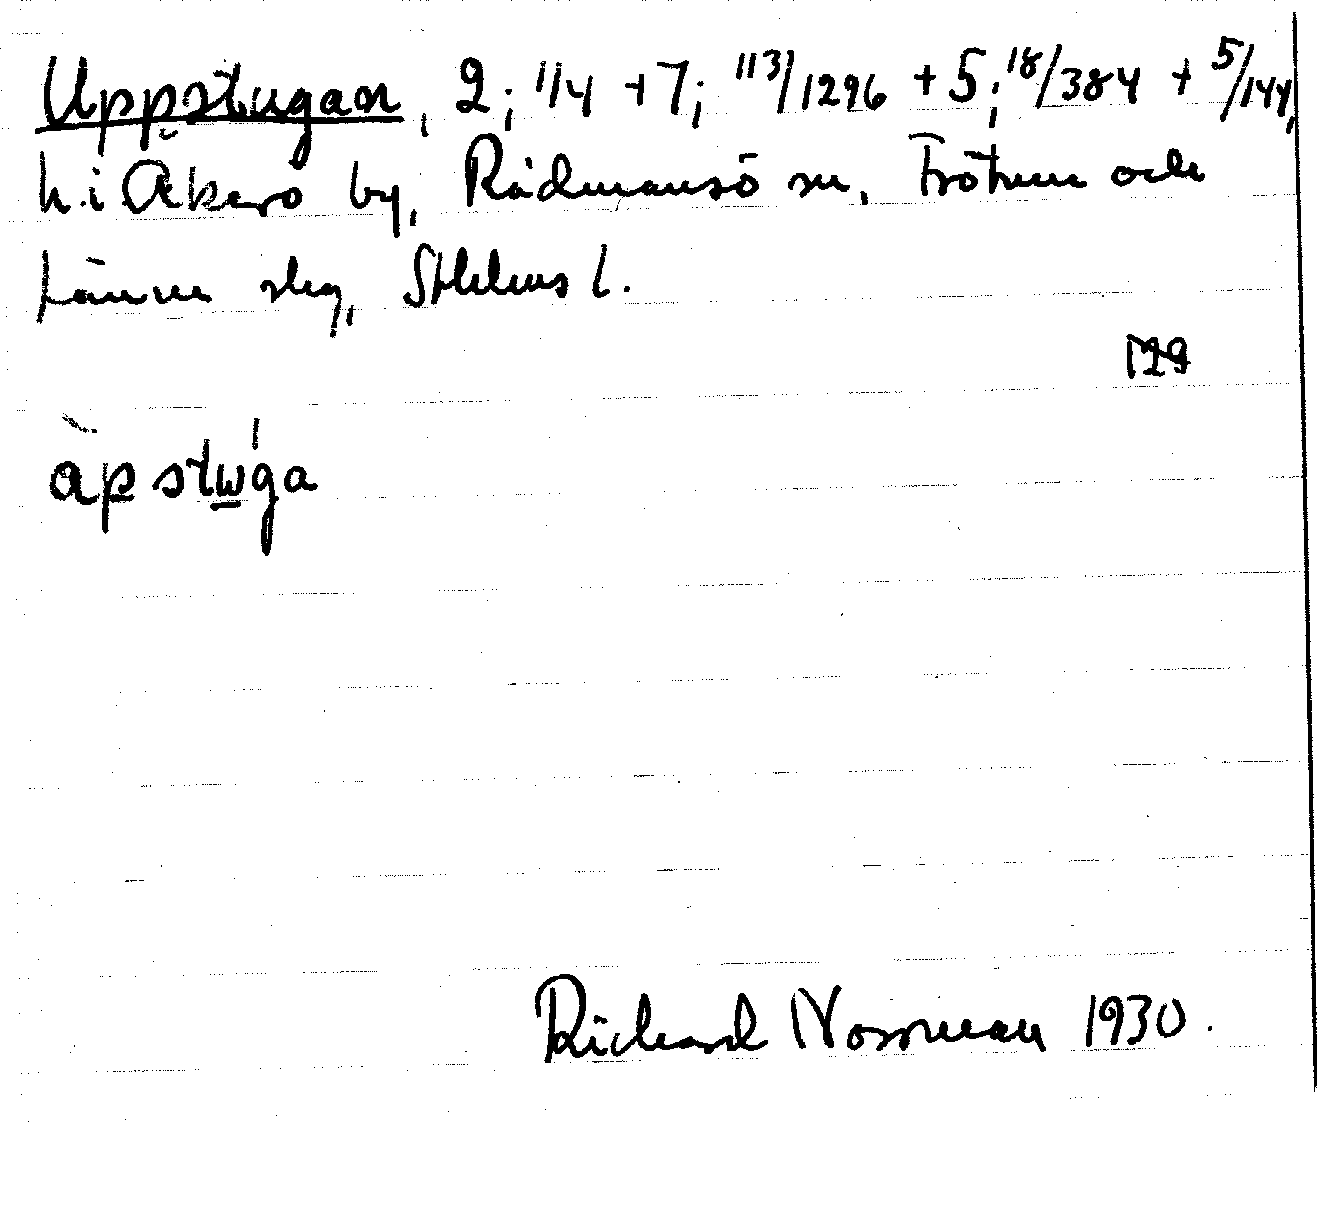 Uppstugan, 2; 1/4 + 7; 113/1296 + 5; 18/384 + 5/144,
h. i Åkerö by, Rådmansö sn, Frötuna och
Länna slg, Sthlms l.
àpstwga
Richard Norrman 1930.